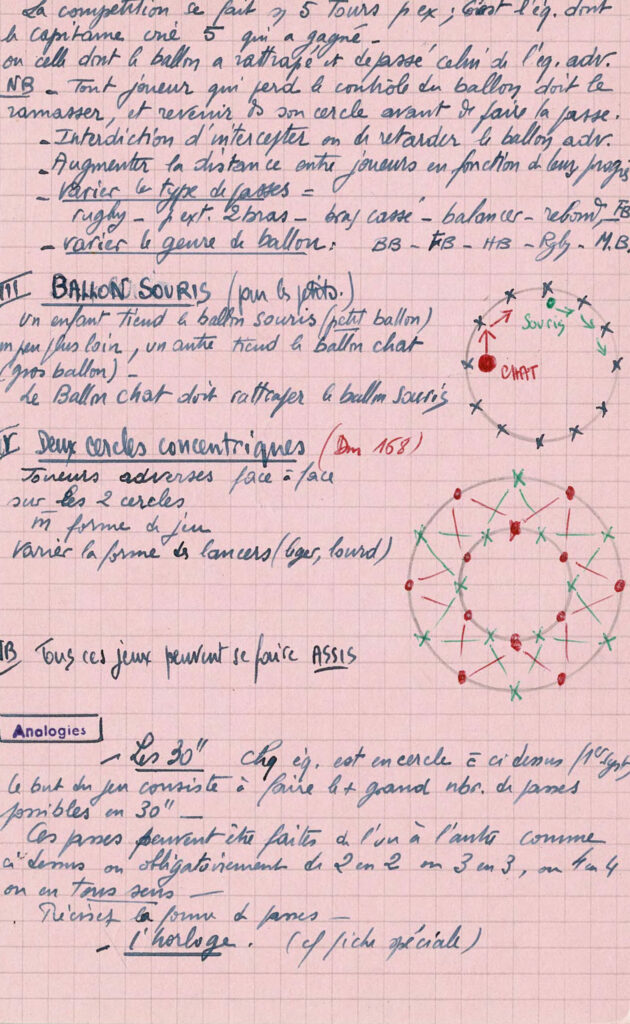 La compétition se fait s/ 5 Tours p ex ; c'est l'éq. dont
le capitaine crié 5 qui a gagné -
ou celle dont le ballon a rattrapé et dépassé celui de l'éq. adv.
NB - Tout joueur qui perd le contrôle du ballon doit le
ramasser, et revenir ds son cercle avant de faire la passe.
- Interdiction d'intercepter ou de retarder le ballon adv.
- Augmenter la distance entre joueurs en fonction de leurs progrès
- Varier le type de passes =
rugby - p ext. 2 bras - bras cassé - balancer - rebond, FB
- varier le genre de ballon : BB - FB - HB - Rgby - M.B.
III BALLON SOURIS (pour les petits.)
Un enfant tiend le ballon souris (petit ballon)
un peu plus loin, un autre tiend le ballon chat
(gros ballon) -
Le Ballon chat doit rattraper le ballon souris
Souris
CHAT
IV Deux cercles concentriques (Dm 168)
Joueurs adverses face à face
sur les 2 cercles
m̄ forme de jeu
Varier la forme des lancers (léger, lourd)
NB Tous ces jeux peuvent se faire ASSIS
Analogies
- Les 30" Chq éq. est en cercle = ci dessus (1er Syst
le but du jeu consiste à faire le + grand nbr. de passes
possibles en 30" -
Ces passes peuvent être faites de l'un à l'autre comme
ci dessus ou obligatoirement de 2 en 2 ou 3 en 3, ou 4 en 4
ou en tous sens -
Préciser la forme de passes -
- l'horloge. (cf fiche spéciale)